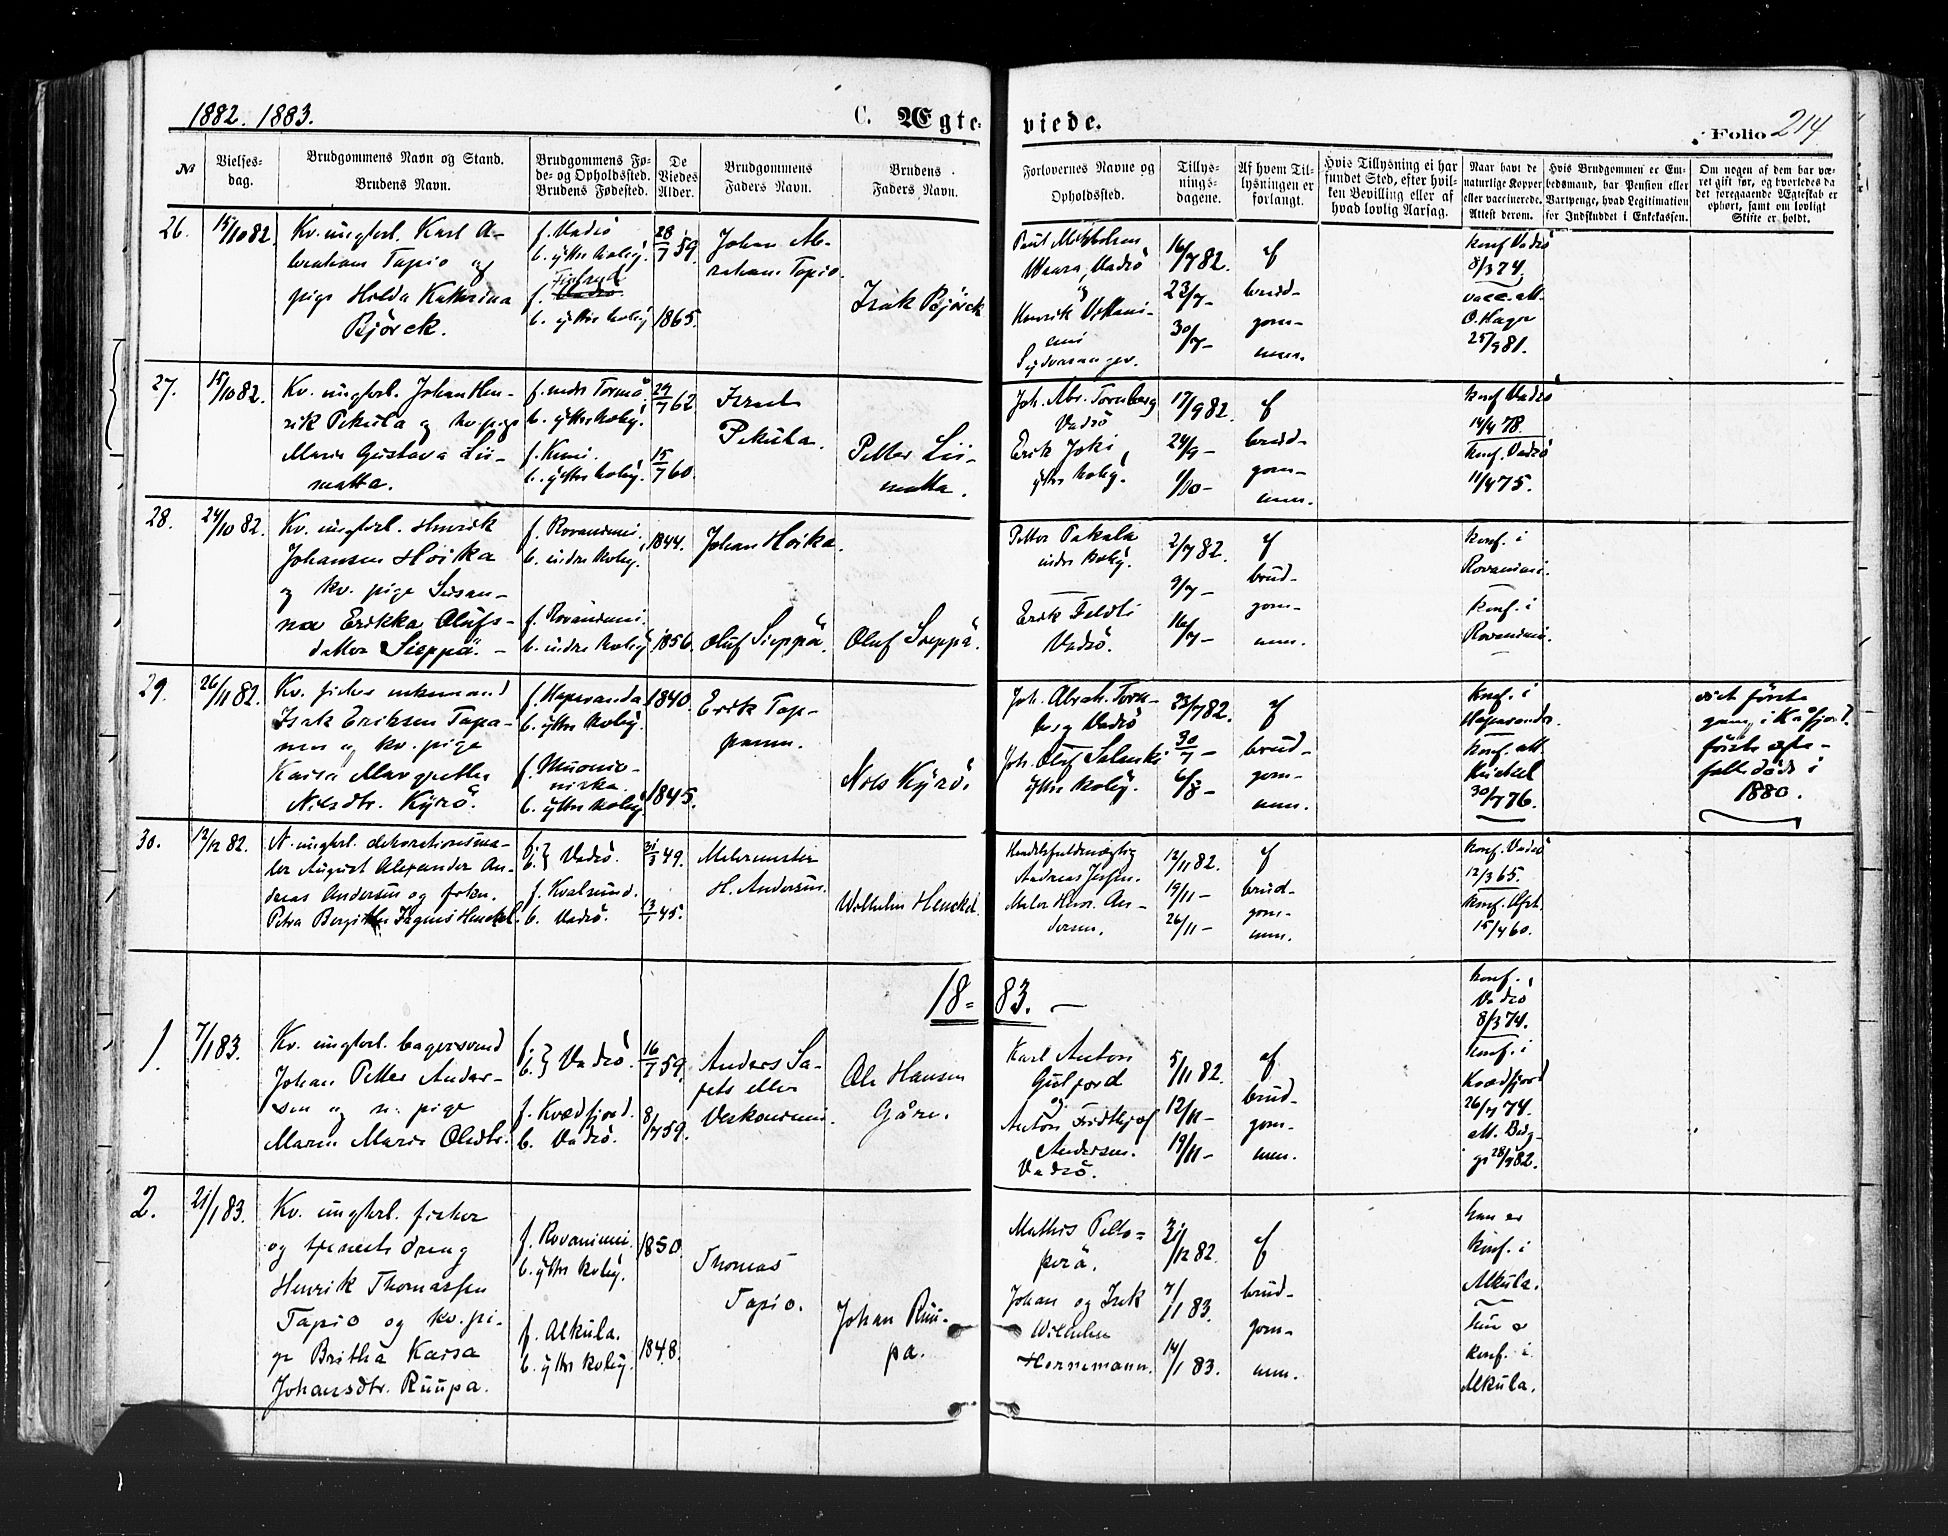 1882. 1883.
C. Ægte-
viede.
Folio 214
№
Vielses-
dag.
Brudgommens Navn og Stand.
Brudens Navn.
Brudgommens Fø-
de- og Opholdssted.
Brudens Fødested.
De
Viedes
Alder.
Brudgommens
Faders Navn.
Brudens
Faders Navn.
Forlovernes Navne og
Opholdssted.
Tillys-
nings-
dagene.
Af hvem Til-
lysningen er
forlangt.
Hvis Tillysning ei har
fundet Sted, efter hvil-
ken Bevilling eller af
hvad lovlig Aarsag.
Naar havt de
naturlige Kopper
eller vaccinerede.
Attest derom.
Hvis Brudgommen er Em-
bedsmand, har Pension eller
Vartpenge, hvad Legitimation
for Indskuddet i Enkekassen.
Om nogen af dem har væ-
ret gift før, og hvorledes da
det foregaaende Ægteskab er
ophørt, samt om lovligt
Skifte er holdt.
26.
15/10 82.
Kv. ungkrl. Karl A-
braham Tapio og
pige Holda Katherina
Björck.
f. Vadsö
b. yttre Kvby.
f. Vadsö.
b. yttre Kvby
28/7 59.
1865.
Johan Ab-
raham Tapio.
Isak Björck
Vaara, Vadsö
og
Henrik
Sydvaranger.
16/7 82.
23/7 -
30/7 -
af
brud-
gom-
men.
Konf. Vadsö
8/3 74.
vacc. att.
O. Hagen
25/9 81.
27.
15/10 82.
Kv. ungkrl. Johan Hen-
rik Pekula og kv. pige
Maria Gustava Lii-
matta.
b. yttre Kvby.
f. Kemi.
b. yttre Kvby.
29/7 62.
15/7 60.
Israel
Pekula.
Petter Lii-
matta.
Joh. Abr. Tornberg
Vadsö
Erik Joki
yttre Kvby.
17/9 82.
24/9 -
1/10 -
af
brud-
gom-
men.
Konf Vadsö
14/4 78.
Konf. Vadsö
11/4 75.
28.
24/10 82.
Kv. ungkrl. Henrik
Johansen Hoikka
og kv. pige Susan-
na Erikka Olufs-
datter Sieppä. -
f. Rovaniemi.
b. indre Kvby.
f. Rovaniemi.
b. indre Kvby
1844.
1856.
Johan Hoikka.
Oluf Sieppä.
Oluf Sieppä.
Petter Pakala
indre Kvby.
Erik Feldti
Vadsö.
2/7 82.
9/7 -
16/7 -
af
brud-
gom-
men.
Konf. i
Rovaniemi.
Konf. i
Rovaniemi.
29.
26/11 82.
Kv. fisker enkemand
Isak Eriksen Tapa-
nen og kv. pige
Kaisa Margretha
Nilsdtr. Kyrö.
f. Haparanda
b. yttre Kvby.
f. Muonio-
niska.
b. yttre Kvby
1840.
1845.
Erik Tap-
panen.
Nils Kyrö.
Joh. Abrah. Torn-
berg Vadsö
Joh. Oluf Salanki
yttre Kvby.
23/7 82.
30/7 -
6/8 -
af
brud-
gom-
men.
Konf. i
Haparanda.
Konf. att.
30/7 76.
viet første
gang i Kåfjord.
første ægte-
fælle døde i
1880.
30.
12/12 82.
N. ungkrl. dekorationsma-
ler August Alexander An-
dreas Andersen og frøken.
Petra Bergithe Henckel.
f. } Vadsö.
b.
f. Kvalsund.
b. Vadsö.
31/3 49.
13/1 45.
Malermester
H. Andersen.
Wilhelm Henckel.
Handelsfuldmægtig
Andreas Jessen.
Maler Henr. An-
dersen.
12/11 82.
19/11 -
26/11 -
af
brud-
gom-
men.
Konf. Vadsö
12/3 65.
15/4 60.
18-83. -
1.
7/1 83.
Kv. ungkrl. bagersvend
Johan Petter Ander-
sen og n. pige
Maren Marie Olsdtr.
f. } Vadsö.
b.
f. Kvædfjord.
b. Vadsö.
16/7 59.
8/7 59.
Anders Sa-
jets eller
Veskoniemi.
Ole Hansen
Gåre.
Karl Anton
Guljord
og
Anton Fridthjof
Andersen.
Vadsö.
5/11 82.
12/11 -
19/11 -
af
brud-
gom-
men.
Konf.
Vadsö
8/3 74.
Konf. i
Kvædfjord
26/7 74.
2.
21/1 83.
Kv. ungkrl. fisker
og tjenestedreng
Henrik Thomassen
Tapio og kv. pi-
ge Britha Kaisa
Johansdtr. Ruupa.
f. Rovaniemi.
b. yttre Kvby.
f. Alkula.
b. yttre Kvby.
1850.
1848.
Thomas
Tapio.
Johan Ruu-
pa.
Mathis Pelto-
perä.
Johan og Isak
Wilhelm
Hornemann.
31/12 82.
7/1 83.
14/1 83.
af
brud-
gom-
men.
han er
konf. i
Alkula.
hun er
konf. i
Alkula.